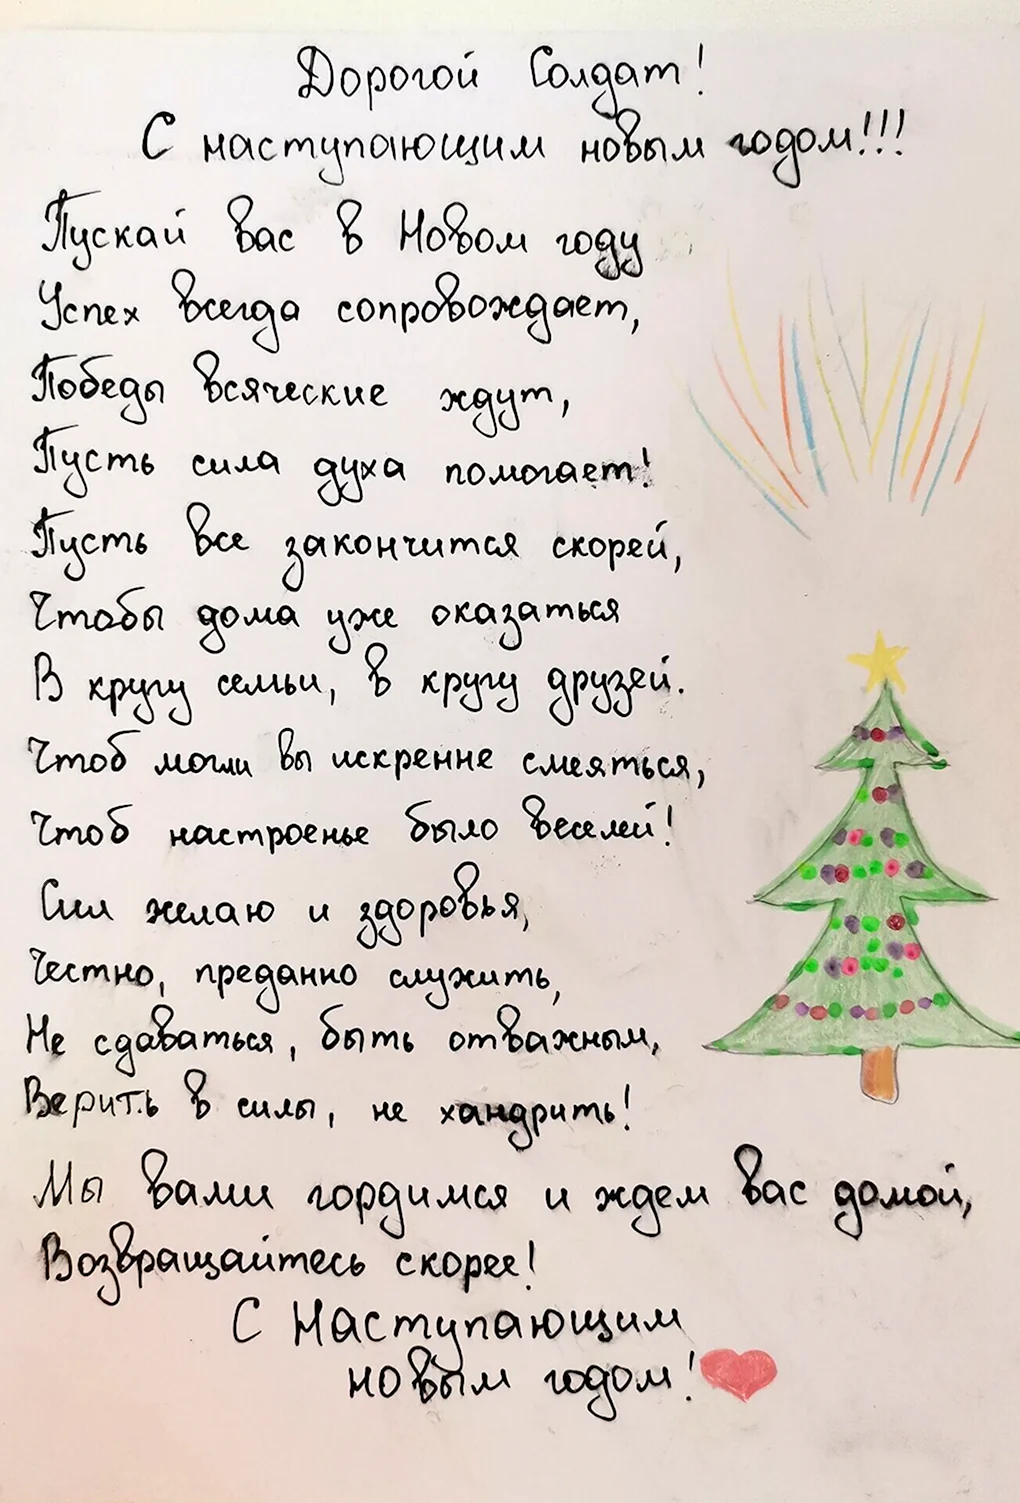 Дорогой Солдат!
С наступающим новым годом!!!
Пускай вас в Новом году
Успех всегда сопровождает,
Победы всяческие ждут,
Пусть сила духа помогает!
Пусть все закончится скорей,
Чтобы дома уже оказаться
В кругу семьи, в кругу друзей.
Чтоб могли вы искренне смеяться,
Чтоб настроенье было веселей!
Сил желаю и здоровья,
Честно, преданно служить,
Не сдаваться, быть отважным,
Верить в силы, не хандрить!
Мы вами гордимся и ждем вас домой,
Возвращайтесь скорее!
С Наступающим
новым годом!